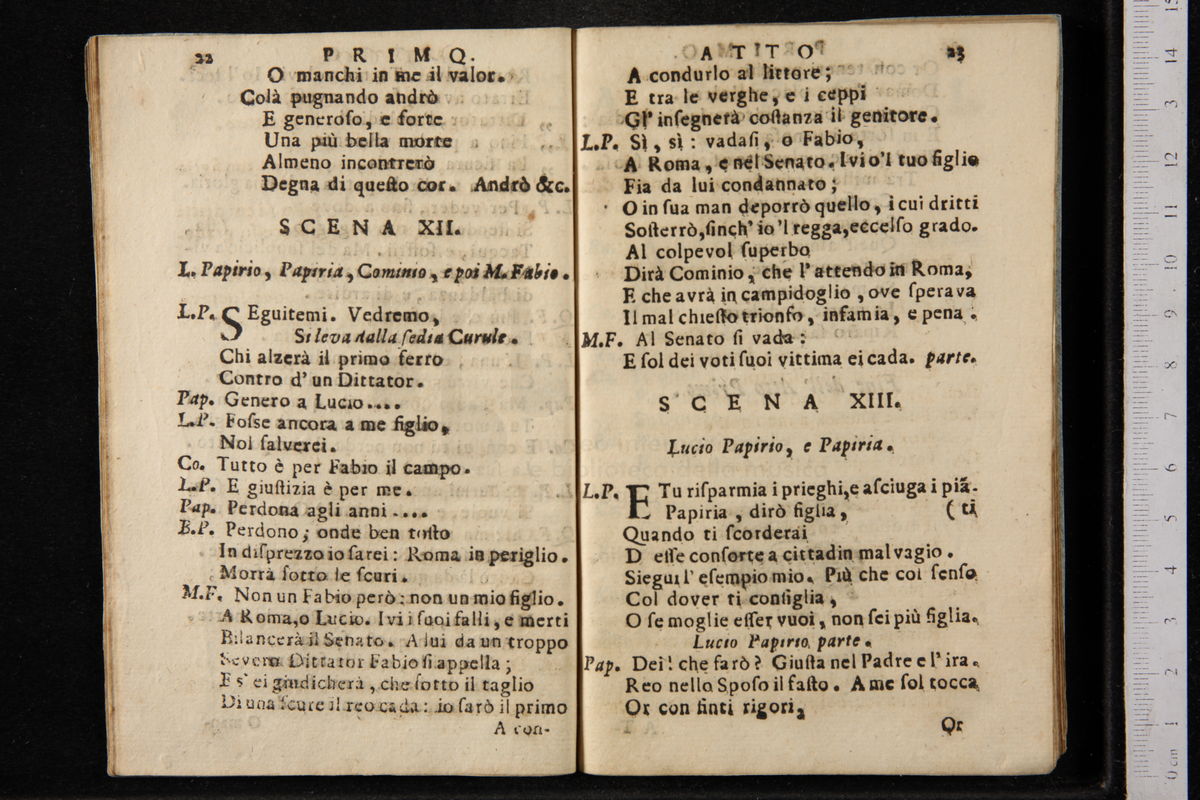 22 PRIMO.
O manchi in me il valor.
Colà pugnando andrò
E generoſo, e forte
Una più bella morte
Almeno incontrerò
Degna di queſto cor. Andrò &c.
SCENA XII.
L. Papirio, Papiria, Cominio, e poi M. Fabio.
L.P. SEguitemi. Vedremo,
Si leva dalla ſedia Curule.
Chi alzerà il primo ferro
Contro d' un Dittator.
Pap. Genero a Lucio....
L.P. Foſse ancora a me figlio,
Nol ſalverei.
Co. Tutto è per Fabio il campo.
L.P. E giuſtizia è per me.
Pap. Perdona agli anni ....
B.P. Perdono; onde ben toſto
In diſprezzo io ſarei: Roma in periglio.
Morrà ſotto le ſcuri.
M.F. Non un Fabio però: non un mio figlio.
A Roma, o Lucio. Ivi i ſuoi falli, e merti
Bilancerà il Senato. A lui da un troppo
Severo Dittator Fabio ſi appella;
E s' ei giudicherà, che ſotto il taglio
Di una ſcure il reo cada: io ſarò il primo
A con-
ATTO 23
A condurlo al littore;
E tra le verghe, e i ceppi
Gl' inſegnerà coſtanza il genitore.
L.P. Sì, sì: vadaſi, o Fabio,
A Roma, e nel Senato. Ivi o'l tuo figlio
Fia da lui condannato;
O in ſua man deporrò quello, i cui dritti
Soſterrò, ſinch' io 'l regga, eccelſo grado.
Al colpevol ſuperbo
Dirà Cominio, che l' attendo in Roma,
E che avrà in campidoglio, ove ſperava
Il mal chieſto trionfo, infamia, e pena.
M.F. Al Senato ſi vada:
E ſol dei voti ſuoi vittima ei cada. parte.
SCENA XIII.
Lucio Papirio, e Papiria.
L.P. E Tu riſparmia i prieghi, e aſciuga i piã-
Papiria, dirò figlia, (ti
Quando ti ſcorderai
D eſſe conſorte a cittadin malvagio.
Siegui l' eſempio mio. Più che col ſenſo
Col dover ti conſiglia,
O ſe moglie eſſer vuoi, non ſei più figlia.
Lucio Papirio parte.
Pap. Dei! che farò? Giuſta nel Padre e l' ira.
Reo nello Spoſo il faſto. A me ſol tocca
Or con finti rigori,
Or